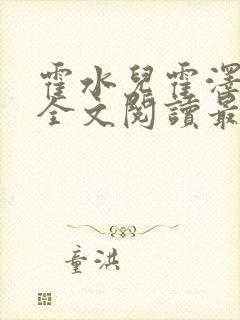 霍水兒霍澤
全文閱讀最
童洪